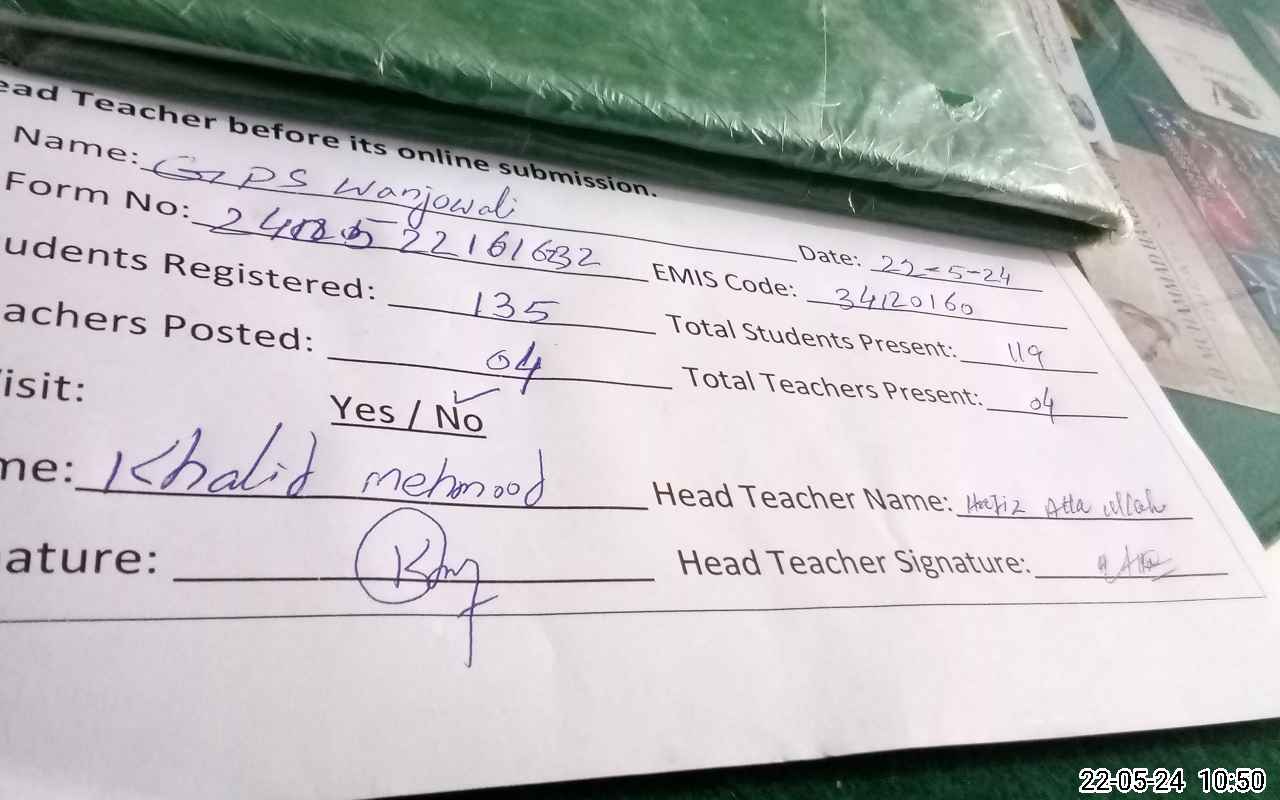 ead Teacher before its online submission.
Name: GPS Wanjowali
Date: 22-5-24
Form No:
EMIS Code: 34120160
udents Registered: 135
Total Students Present: 119
achers Posted: 04
Total Teachers Present: 04
isit: Yes / No ✓
me: Khalid mehmood
Head Teacher Name: Hafiz Atta ullah
ature:
Head Teacher Signature:
22-05-24 10:50